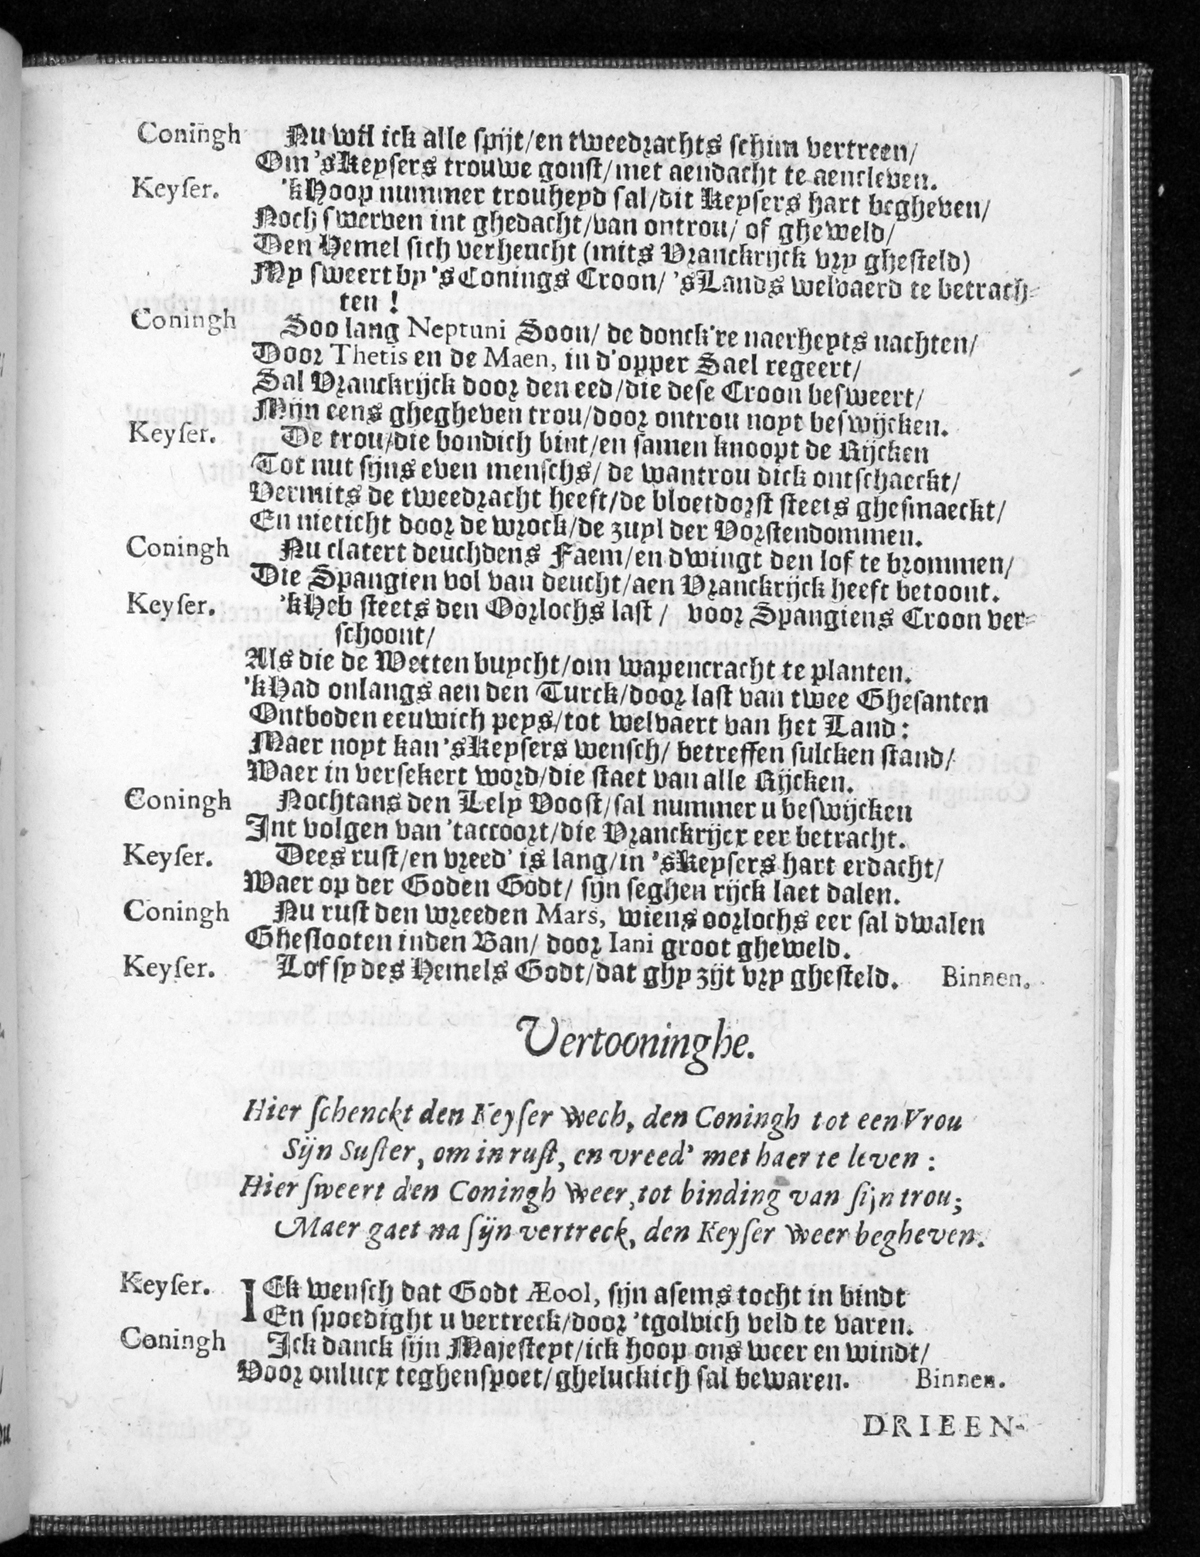 Coningh Nu wil ick alle spijt/en tweedrachts schim vertreen/
Om 'sKeysers trouwe gonst/met aendacht te aencleven.
Keyser. 'kHoop nummer trouheyd sal/dit Keysers hart begheven/
Noch swerven int ghedacht/van ontrou/ of gheweld/
Den Hemel sich verheucht (mits Vranckrijck vry ghesteld)
My sweert by 'sConings Croon/ 'sLands welvaerd te betrach-
ten!
Coningh Soo lang Neptuni Soon/ de donck're naerheyts nachten/
Door Thetis en de Maen, in d'opper Sael regeert/
Sal Vranckrijck door den eed/die dese Croon besweert/
Mijn eens ghegheven trou/door ontrou noyt beswijcken.
Keyser. De trou/die bondich bint/en samen knoopt de Rijcken
Tot nut sijns even menschs/ de wantrou dick ontschaeckt/
Vermits de tweedracht heeft/de bloetdorst steets ghesmaeckt/
En nieticht door de wrock/de zuyl der Vorstendommen.
Coningh Nu clatert deuchdens Faem/en dwingt den lof te brommen/
Die Spangien vol van deucht/aen Vranckrijck heeft betoont.
Keyser. 'kHeb steets den Oorlochs last / voor Spangiens Croon ver-
schoont/
Als die de Wetten buycht/om wapencracht te planten.
'kHad onlangs aen den Turck/door last van twee Ghesanten
Ontboden eeuwich peys/tot welvaert van het Land:
Maer noyt kan 'sKeysers wensch/ betreffen sulcken stand/
Waer in versekert word/die staet van alle Rijcken.
Coningh Nochtans den Lely Voost/sal nummer u beswijcken
Int volgen van 'taccoort/die Vranckrijcx eer betracht.
Keyser. Dees rust/en vreed' is lang/in 'sKeysers hart erdacht/
Waer op der Goden Godt/ sijn seghen rijck laet dalen.
Coningh Nu rust den wreeden Mars, wiens oorlochs eer sal dwalen
Gheslooten inden Ban/ door Iani groot gheweld.
Keyser. Lof sy des Hemels Godt/dat ghy zijt vry ghesteld. Binnen.
Vertooninghe.
Hier schenckt den Keyser wech, den Coningh tot een Vrou
Sijn Suster, om in rust, en vreed' met haer te leven :
Hier sweert den Coningh weer, tot binding van sijn trou;
Maer gaet na sijn vertreck, den Keyser weer begheven.
Keyser. IEk wensch dat Godt Æool, sijn asems tocht in bindt
En spoedight u vertreck/door 'tgolvich veld te varen.
Coningh Ick danck sijn Majesteyt/ick hoop ons weer en windt/
Voor onlucx teghenspoet/gheluckich sal bewaren. Binnen.
DRIEEN-